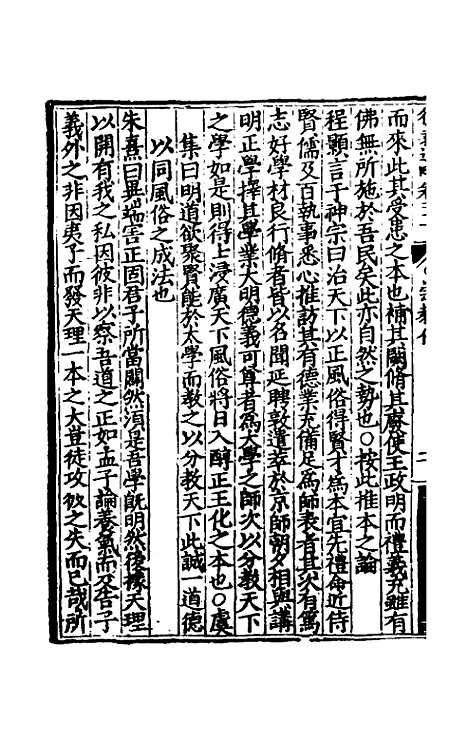 而來此其受患之本也補其闕脩其廢使王政明而禮義充雖有
佛無所施於吾民矣此亦自然之勢也○按此推本之論
程顥言于神宗曰治天下以正風俗得賢才為本宜先禮命近侍
賢儒及百執事悉心推訪其有德業充備足為師表者其次有篤
志好學材良行脩者皆以名聞延聘敦遣萃於京師朝夕相與講
明正學擇其學業大明德義可尊者為太學之師次以分教天下
之學如是則得士浸廣天下風俗將日入醇正王化之本也○虞
集曰明道欲聚賢能於太學而教之以分教天下此誠一道德
以同風俗之成法也
朱熹曰異端害正固君子所當闢然須是吾學既明然後據天理
以開有我之私因彼非以察吾道之正如孟子論養氣而及告子
義外之非因夷子而發天理一本之大豈徒攻彼之失而已哉所